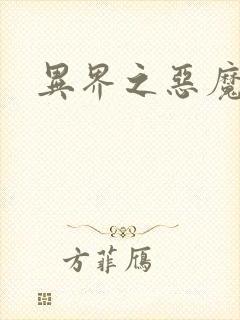 異界之惡魔
方菲雁